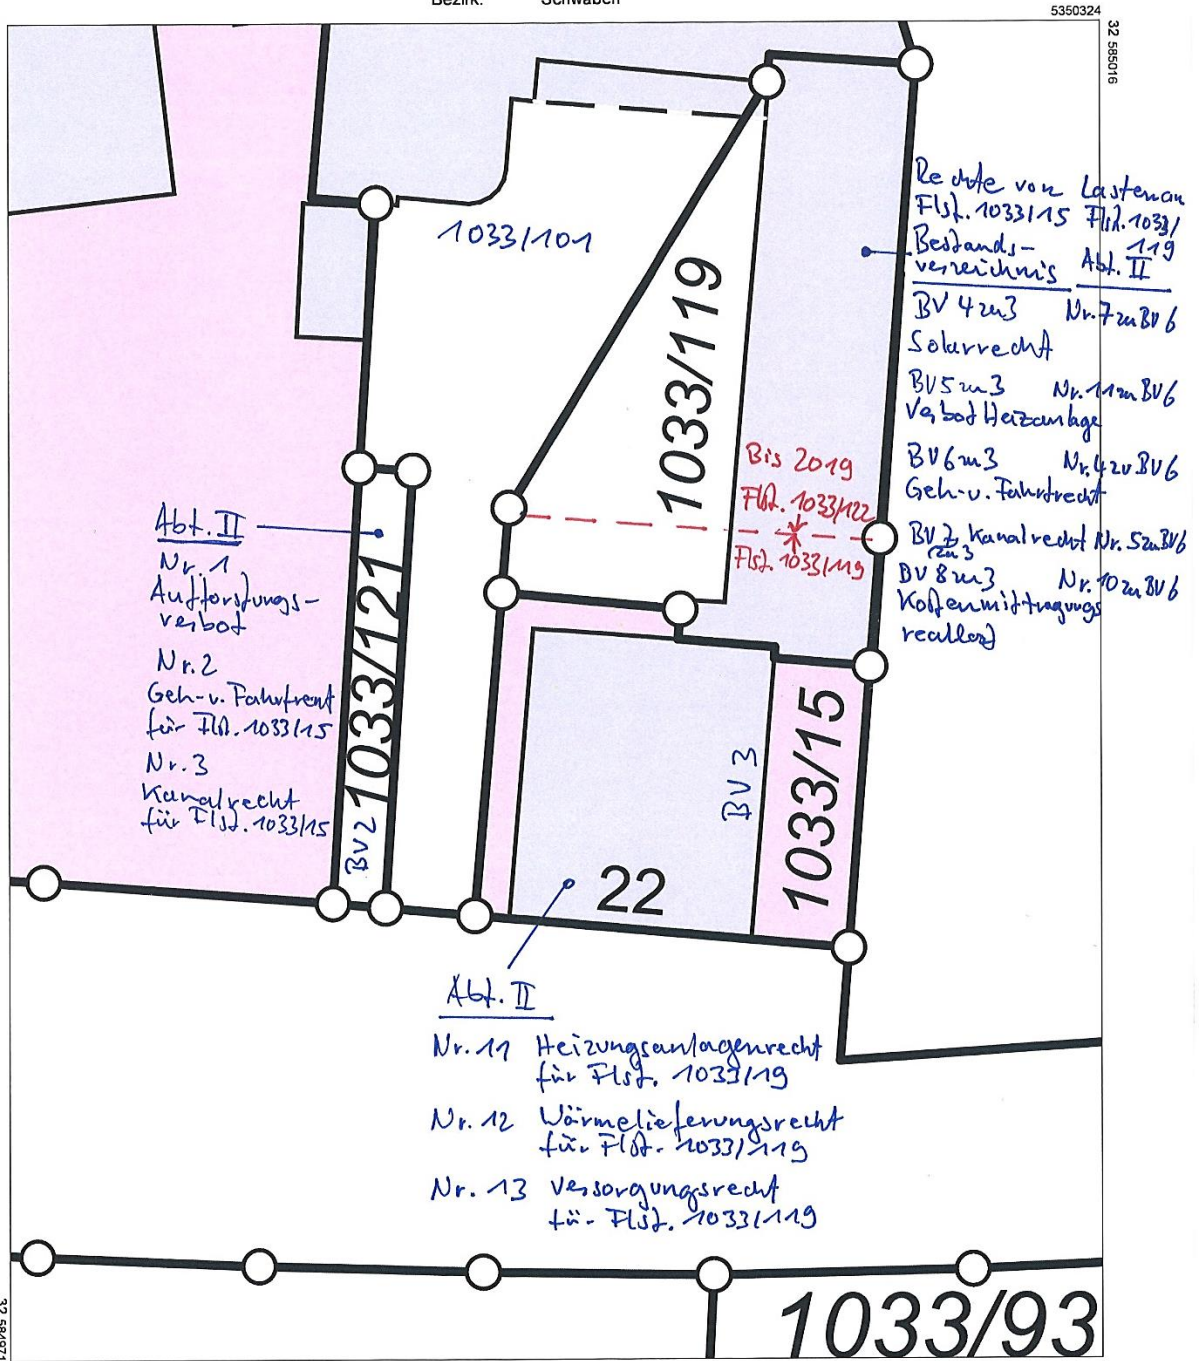 Bezirk: Schwaben
5350324
32 585016
1033/101
1033/119
Rechte von
Flst. 1033/15
Bestands-
verzeichnis
Lasten an
Flst. 1033/
119
Abt. II
BV 4 zu 3 Nr. 7 zu BV 6
Solarrecht
BV 5 zu 3 Nr. 11 zu BV 6
Verbot Heizanlage
BV 6 zu 3 Nr. 4 zu BV 6
Geh- u. Fahrtrecht
BV 7 Kanalrecht Nr. 5 zu BV 6
zu 3
BV 8 zu 3 Nr. 10 zu BV 6
Kostenmittragungs
reallast
Bis 2019
Flst. 1033/122
Flst. 1033/119
Abt. II
Nr. 1
Aufforstungs-
verbot
Nr. 2
Geh- u. Fahrtrecht
für Flst. 1033/15
Nr. 3
Kanalrecht
für Flst. 1033/15
BV 2
1033/121
BV 3
1033/15
22
Abt. II
Nr. 11 Heizungsanlagenrecht
für Flst. 1033/19
Nr. 12 Wärmelieferungsrecht
für Flst. 1033/119
Nr. 13 Versorgungsrecht
für Flst. 1033/119
1033/93